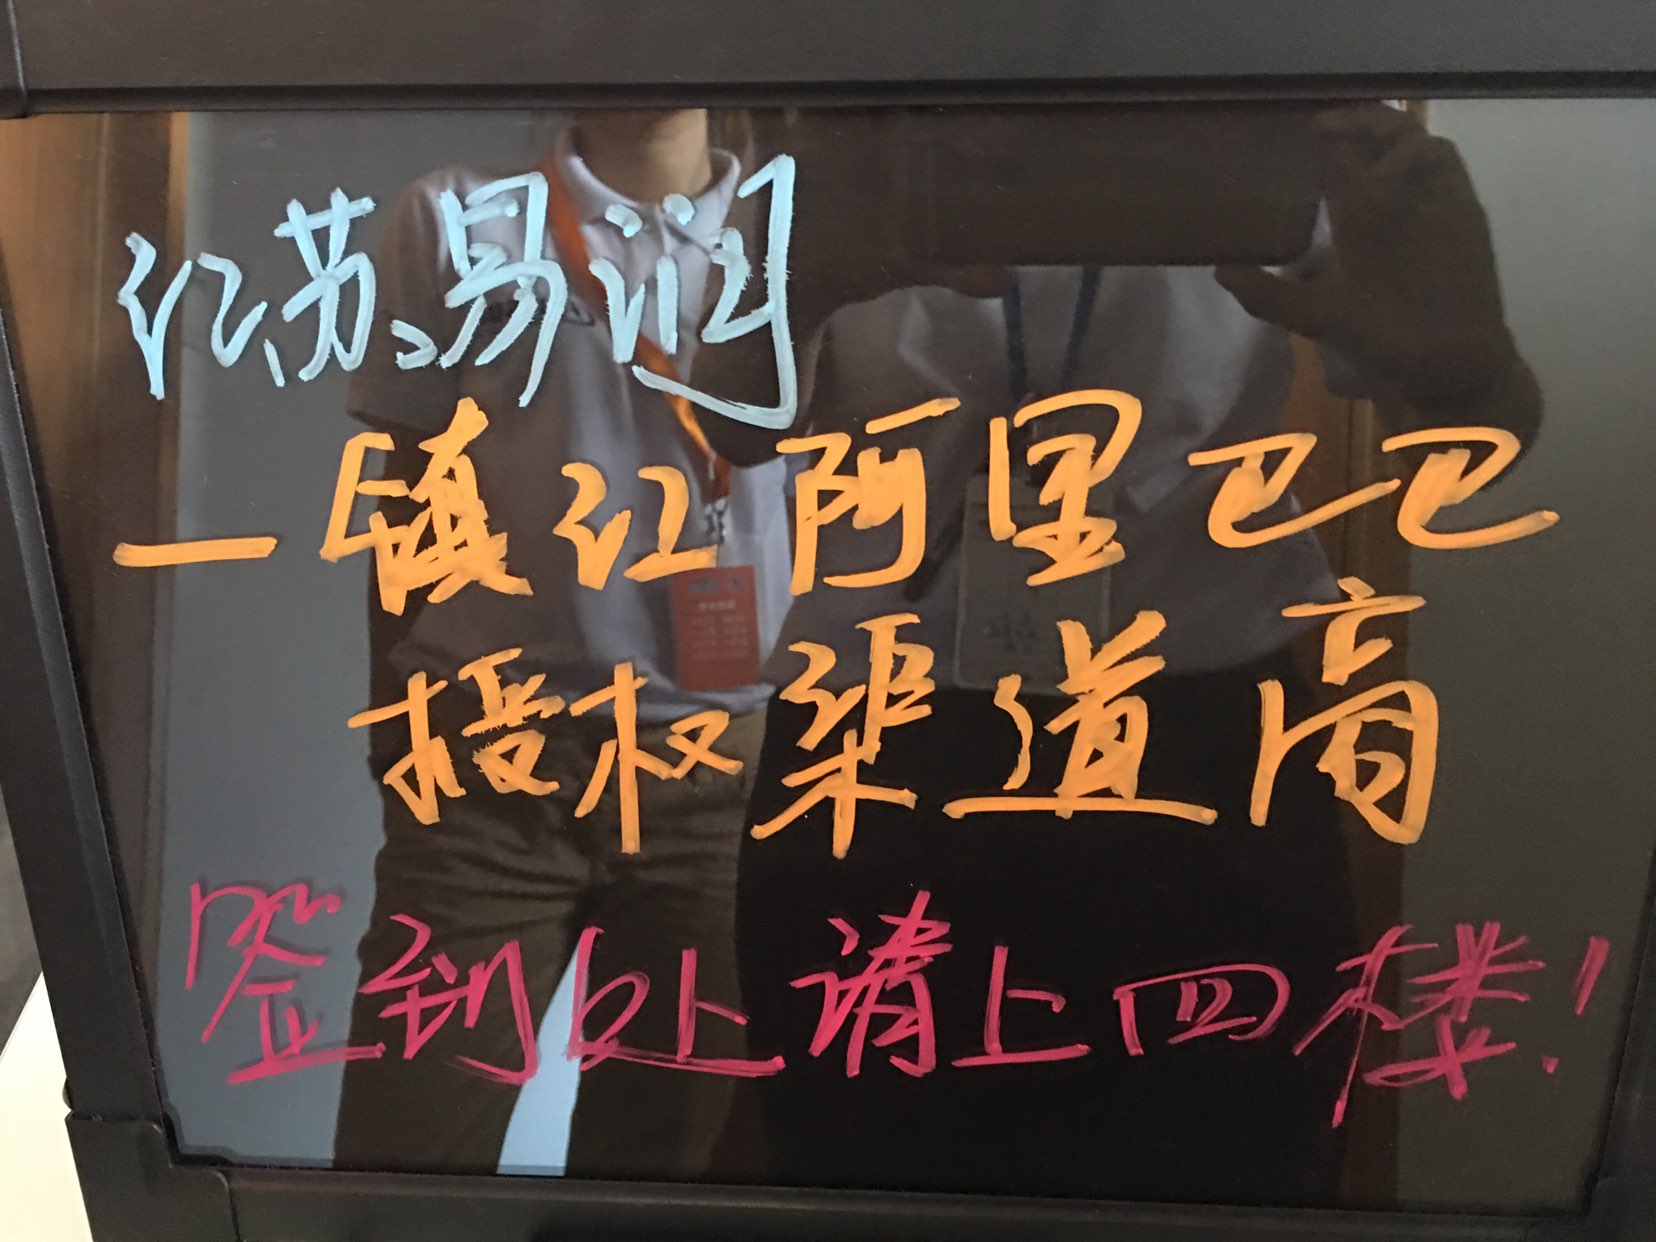 江苏易润
一镇江阿里巴巴
授权渠道高
签到处请上四楼!